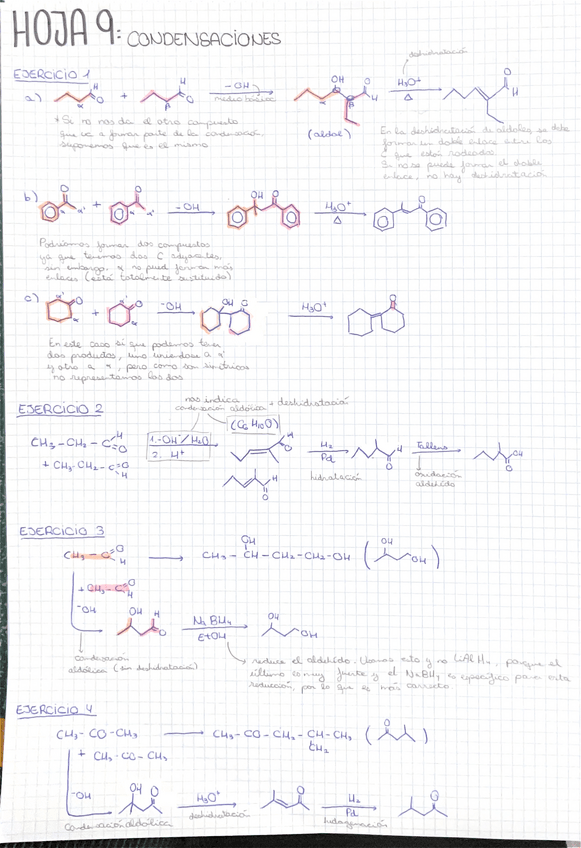 HOJA 9: CONDENSACIONES
EJERCICIO 1
deshidratación
a)
H
O
+
H
O
α
-OH
medio básico
OH
O
H
α
(aldol)
H3O+
Δ
O
H
* Si no nos da el otro compuesto
que va a formar parte de la condensación
suponemos que es el mismo
En la deshidratación de aldoles, se debe
formar un doble enlace entre los
C que están rodeados.
Si no se puede formar el doble
enlace, no hay deshidratación
b)
O
α
α'
+
O
α
α'
-OH
OH
O
H3O+
Δ
O
Podríamos formar dos compuestos
ya que tenemos dos C adyacentes,
sin embargo, α no puede formar más
enlaces (está totalmente sustituida)
c)
α'
O
α
+
α'
O
α
-OH
OH
O
H3O+
O
En este caso sí que podemos tener
dos productos, uno uniendose a α'
y otro a α, pero como son simétricos
no representamos los dos
EJERCICIO 2
nos indica
condensación aldólica + deshidratación
(C6H10O)
CH3-CH2-C
H
O
+ CH3-CH2-C
O
H
1.-OH-/H2O
2. H+
H
O
H
O
H2
Pd
H
O
Tollens
oxidación
aldehído
OH
O
EJERCICIO 3
CH3-C
O
H
CH3-CH-CH2-CH2-OH
OH
(
OH
OH
)
+ CH3-C
O
H
-OH
OH
H
O
NaBH4
EtOH
OH
OH
condensación
aldólica (sin deshidratación)
reduce el aldehído. Usamos esto y no LiAlH4, porque el
último es muy fuerte y el NaBH4 es específico para esta
reducción, por lo que es más correcto.
EJERCICIO 4
CH3-CO-CH3
CH3-CO-CH2-CH-CH3
CH3
(
O
)
+ CH3-CO-CH3
-OH
OH
O
H3O+
deshidratación
O
H2
Pd
hidrogenación
O
Condensación aldólica